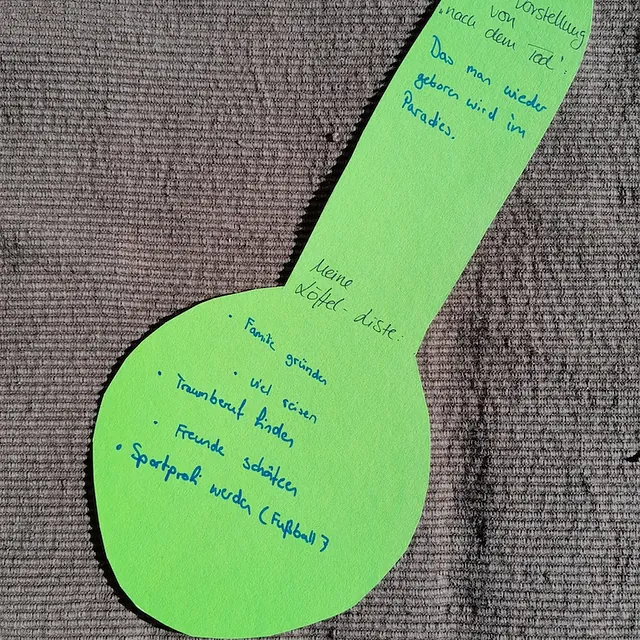 Vorstellung
von
"nach dem Tod":
Das man wieder
geboren wird im
Paradies.
Meine
Löffel-Liste:
• Familie gründen
• viel reisen
• Traumberuf finden
• Freunde schätzen
• Sportprofi werden (Fußball)